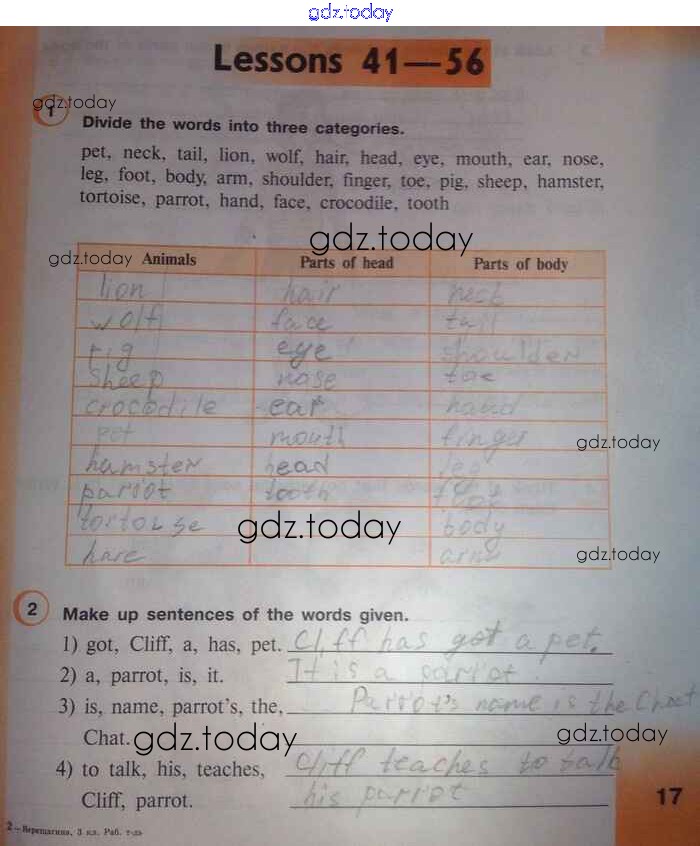 gdz.today
Lessons 41—56
gdz.today
1 Divide the words into three categories.
pet, neck, tail, lion, wolf, hair, head, eye, mouth, ear, nose,
leg, foot, body, arm, shoulder, finger, toe, pig, sheep, hamster,
tortoise, parrot, hand, face, crocodile, tooth
gdz.today
gdz.today
Animals Parts of head Parts of body
lion hair neck
wolf face tail
pig eye shoulder
sheep nose toe
crocodile ear hand
pet mouth finger
gdz.today
hamster head leg
parrot tooth foot
tortoise body
gdz.today
hare arm
gdz.today
2 Make up sentences of the words given.
1) got, Cliff, a, has, pet. Cliff has got a pet.
2) a, parrot, is, it. It is a parrot.
3) is, name, parrot's, the, Parrot's name is the Chat
Chat.
gdz.today
gdz.today
4) to talk, his, teaches, Cliff teaches to talk
Cliff, parrot. his parrot
17
2—Верещагина, 3 кл. Раб. т-дь
gdz.today